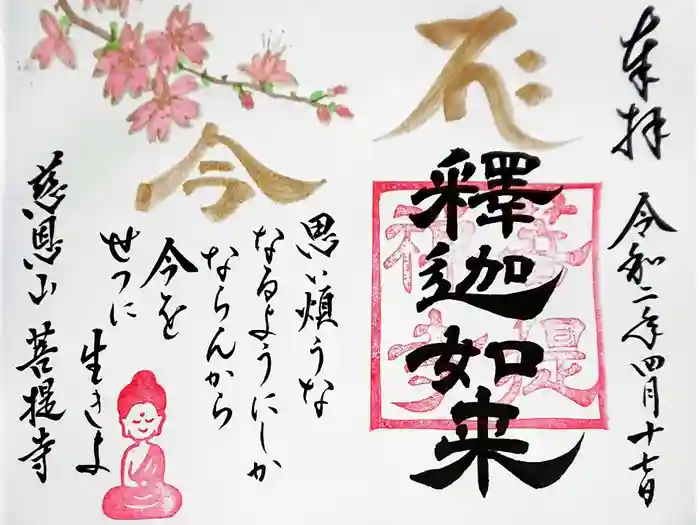 奉拝
令和二年四月十七日
釋迦如来
菩提禅寺
今
思い煩うな
なるようにしか
ならんから
今を
せつに
生きよ
慈恩山 菩提寺